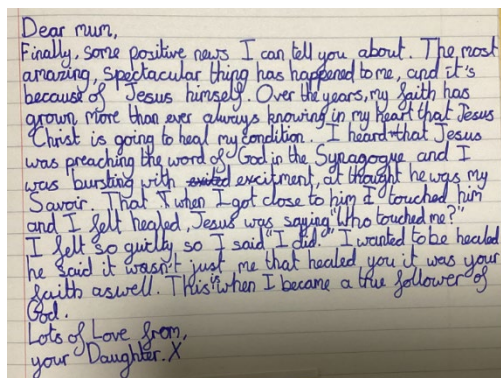 Dear mum,
Finally, some positive news I can tell you about. The most
amazing, spectacular thing has happened to me, and it's
because of Jesus himself. Over the years, my faith has
grown more than ever always knowing in my heart that Jesus
Christ is going to heal my condition. I heard that Jesus
was preaching the word of God in the Synagogue and I
was bursting with exited excitment, at thought he was my
Savoir. That when I got close to him I touched him
and I felt healed, Jesus was saying "Who touched me?"
I felt so guilty so I said "I did." I wanted to be healed
he said it wasn't just me that healed you it was your
faith aswell. This is when I became a true follower of
God.
Lots of Love from,
your Daughter. X